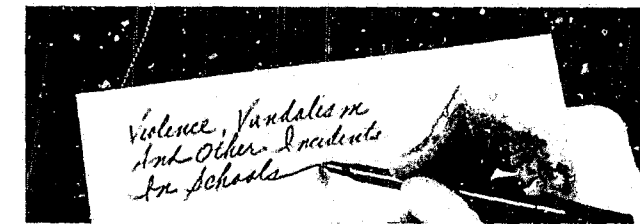 Violence, Vandalism
And Other Incidents
In Schools